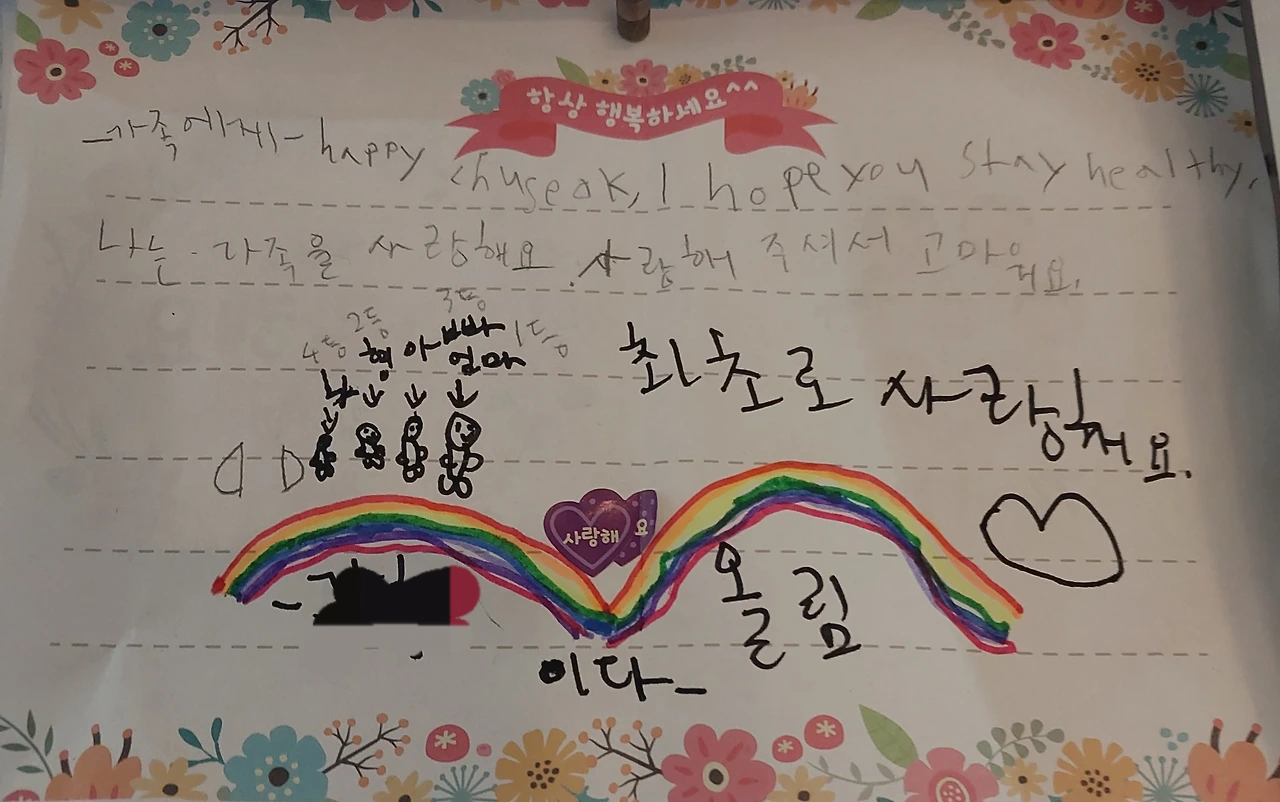 항상 행복하세요^^
-가족에게- happy chuseok, I hope you stay healthy,
나는 가족을 사랑해요. 사랑해 주셔서 고마워요.
4등 2등 3등 1등
나 형 아빠 엄마
최초로 사랑해요.
사랑해요
오
글림
이다-